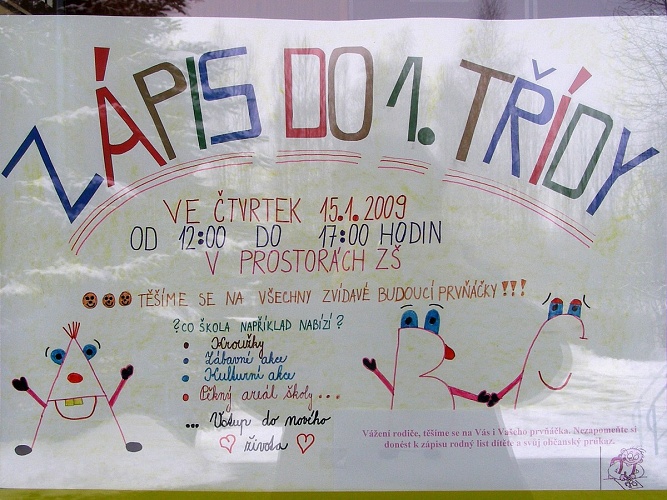 ZÁPIS DO 1. TŘÍDY
VE ČTVRTEK 15.1.2009
OD 12:00 DO 17:00 HODIN
V PROSTORÁCH ZŠ
TĚŠÍME SE NA VŠECHNY ZVÍDAVÉ BUDOUCÍ PRVŇÁČKY!!!
?CO ŠKOLA NAPŘÍKLAD NABÍZÍ?
• Kroužky
• Zábavné akce
• Kulturní akce
• Pěkný areál školy...
... Vstup do nového
života
A B C
Vážení rodiče, těšíme se na Vás i Vašeho prvňáčka. Nezapomeňte si
donést k zápisu rodný list dítěte a svůj občanský průkaz.